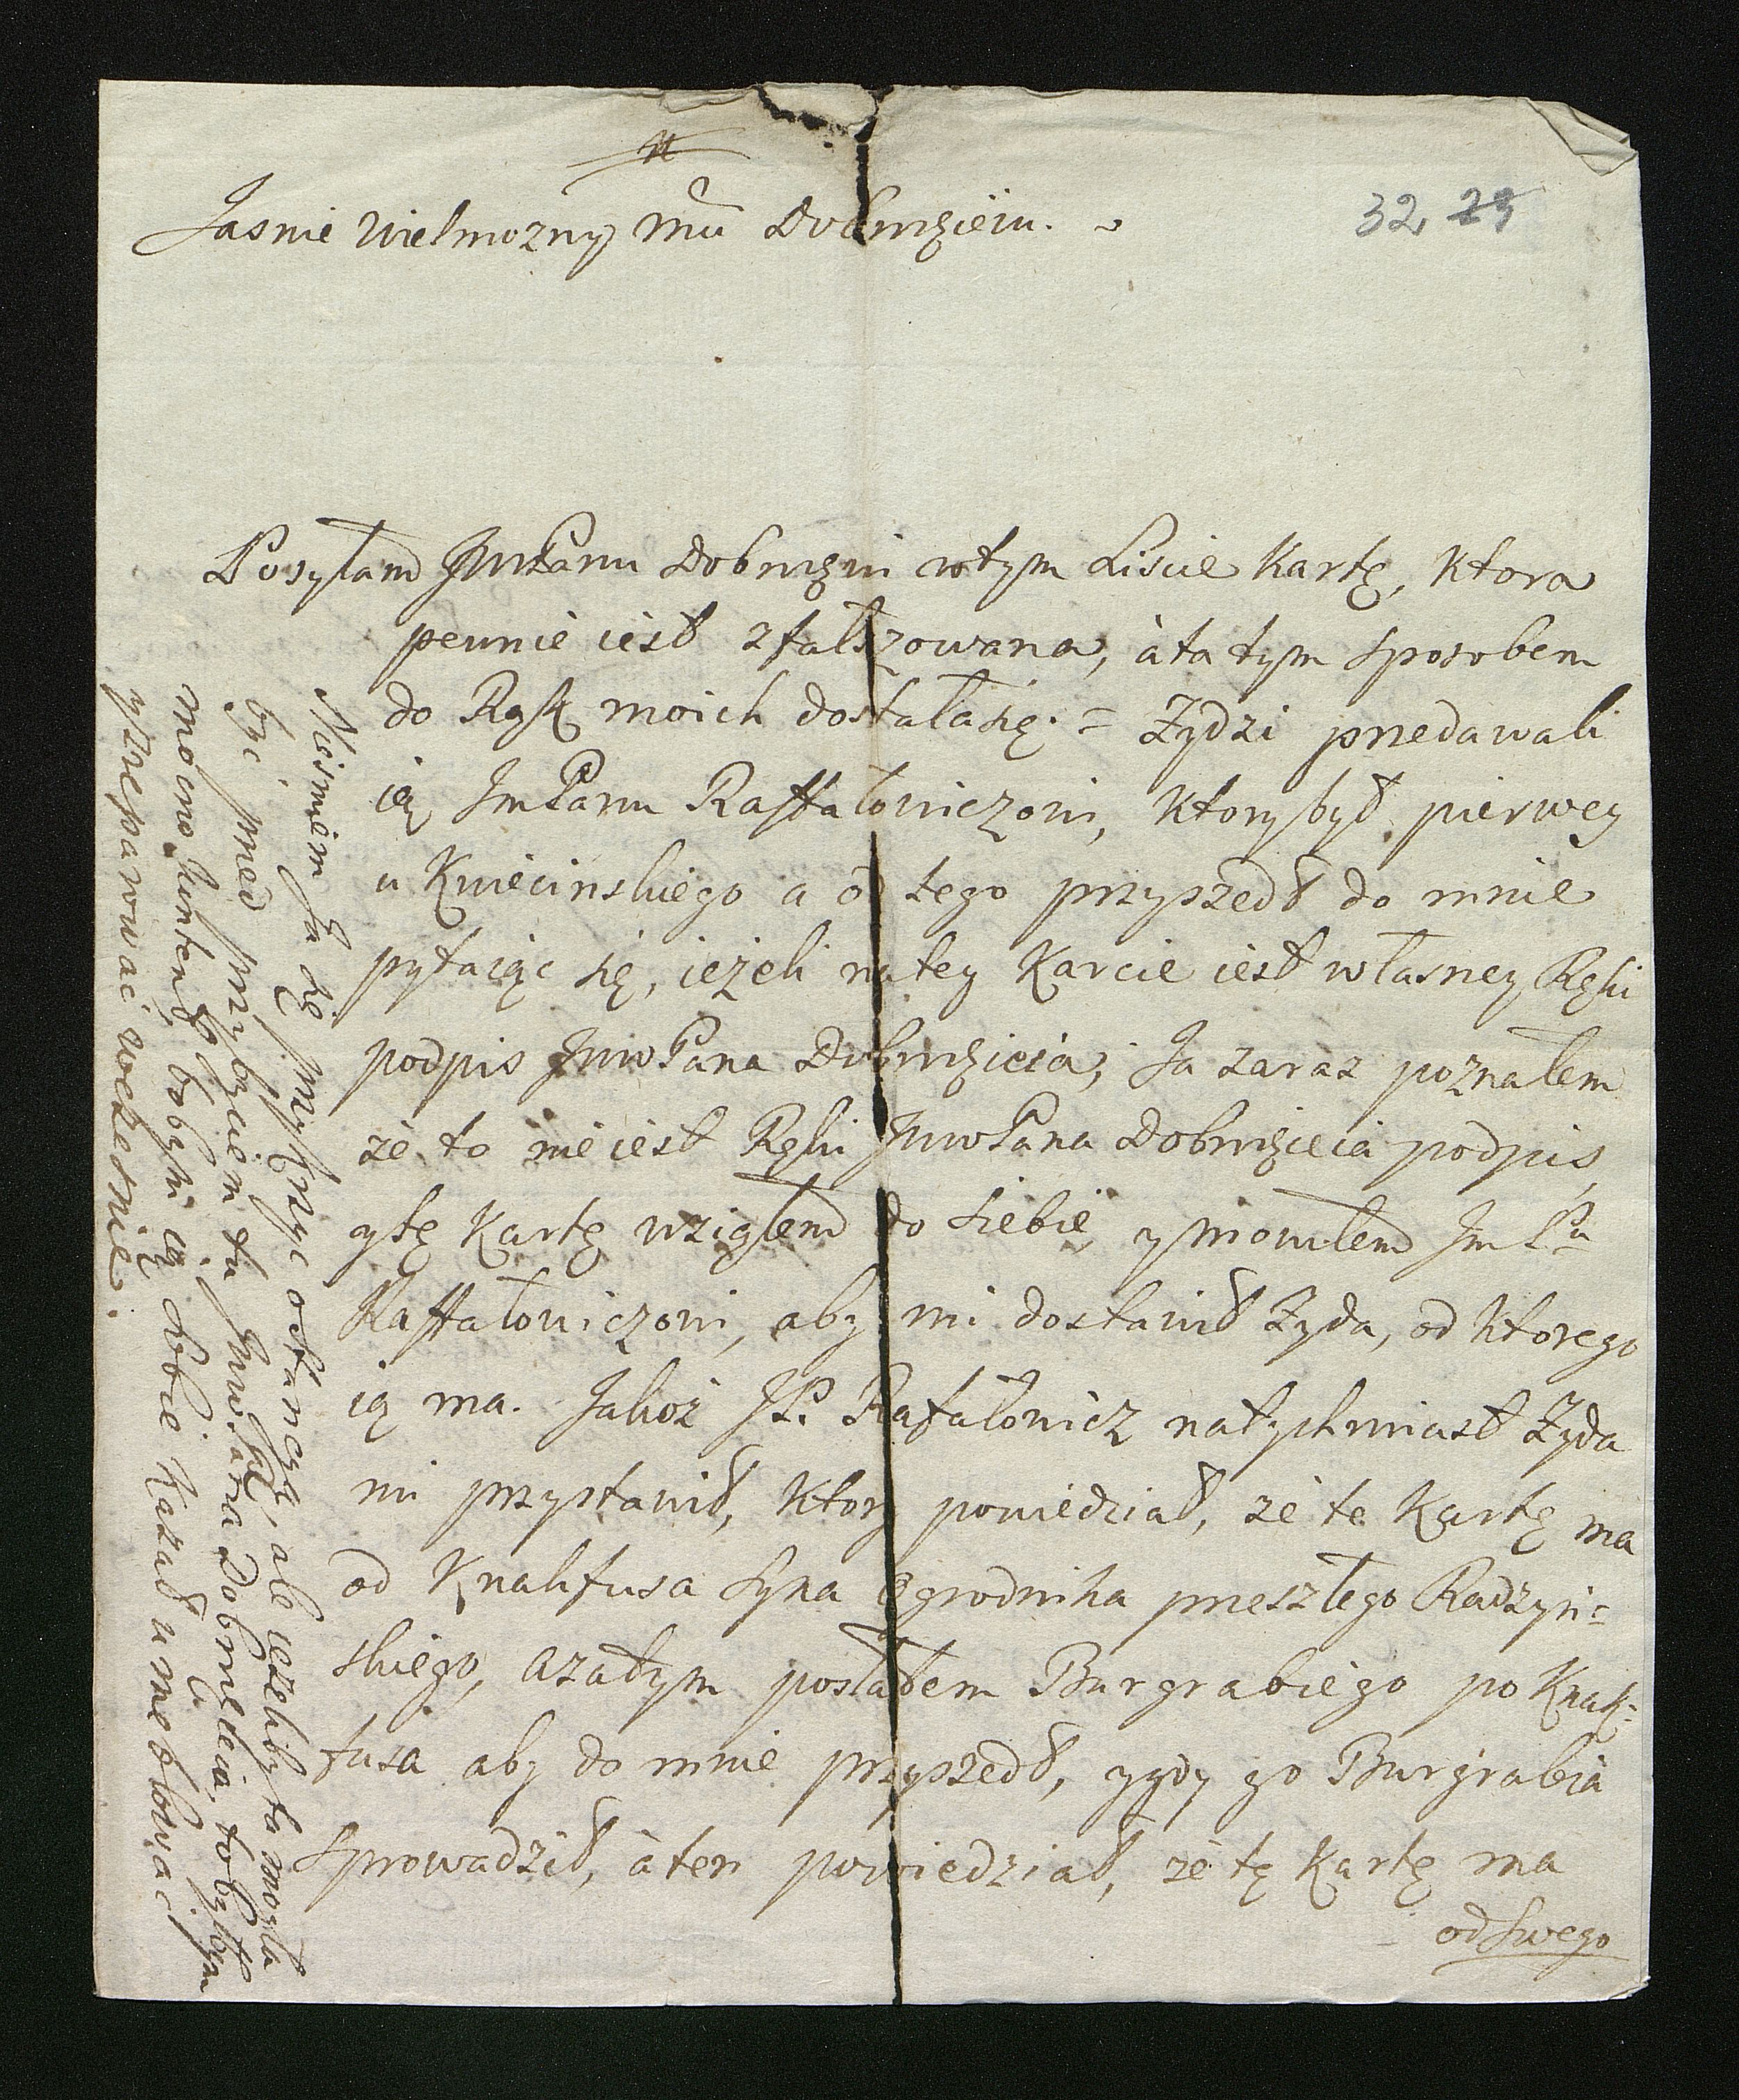 Jasnie Wielmozny Mu Dobrodzieiu.
32, 29
Posyłam JmPanu Dobrdzieiowi wtym Liscie Kartę, Ktora
pewnie iest zfałszowana, à ta tym Sposobem
do Rąk moich dostała się. = Zydzi przedawali
ią ImPanu Raffałowiczowi, Ktory był pierwey
u Kwiecinskiego a od tego przyszedł do mnie
pytaiąc się, ieżeli na tey Karcie iest własney Ręki
podpis JmwPana Dobrdzieia, Ja zaraz poznałem
że to nie iest Ręki JmwPana Dobrdzieia podpis,
y tę Kartę wziąłem do siebie, y mowiłem Jm Pu
Raffałowiczowi, aby mi dostawił Zyda, od Ktorego
ią ma. Jakoż JP. Rafałowicz natychmiast Zyda
mi przystawił, Ktory powiedział, że te Kartę ma
od Knakfusa Syna Ogrodnika przeszłego Radzyń=
skiego, a zatym posłałem Burgrabiego po Knak=
fusa aby do mnie przyszedł, y gdy go Burgrabia
Sprowadził, à ten powiedział, że tę Kartę ma
od Swego
Niesmiem Ja się przykrzyc o stancyą, ale ieżeliby ta mogła
być przed przybyciem tu JmwPana Dobrdzieia, to byłbym
mocno kontent, bobym ią sobie kazał umeblować
y wreparowac wczesnie.